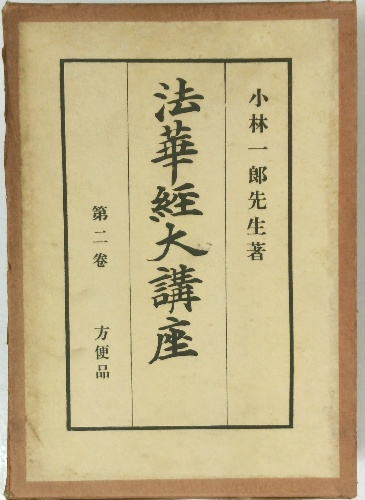 小林一郎先生著
法華経大講座
第二卷 方便品